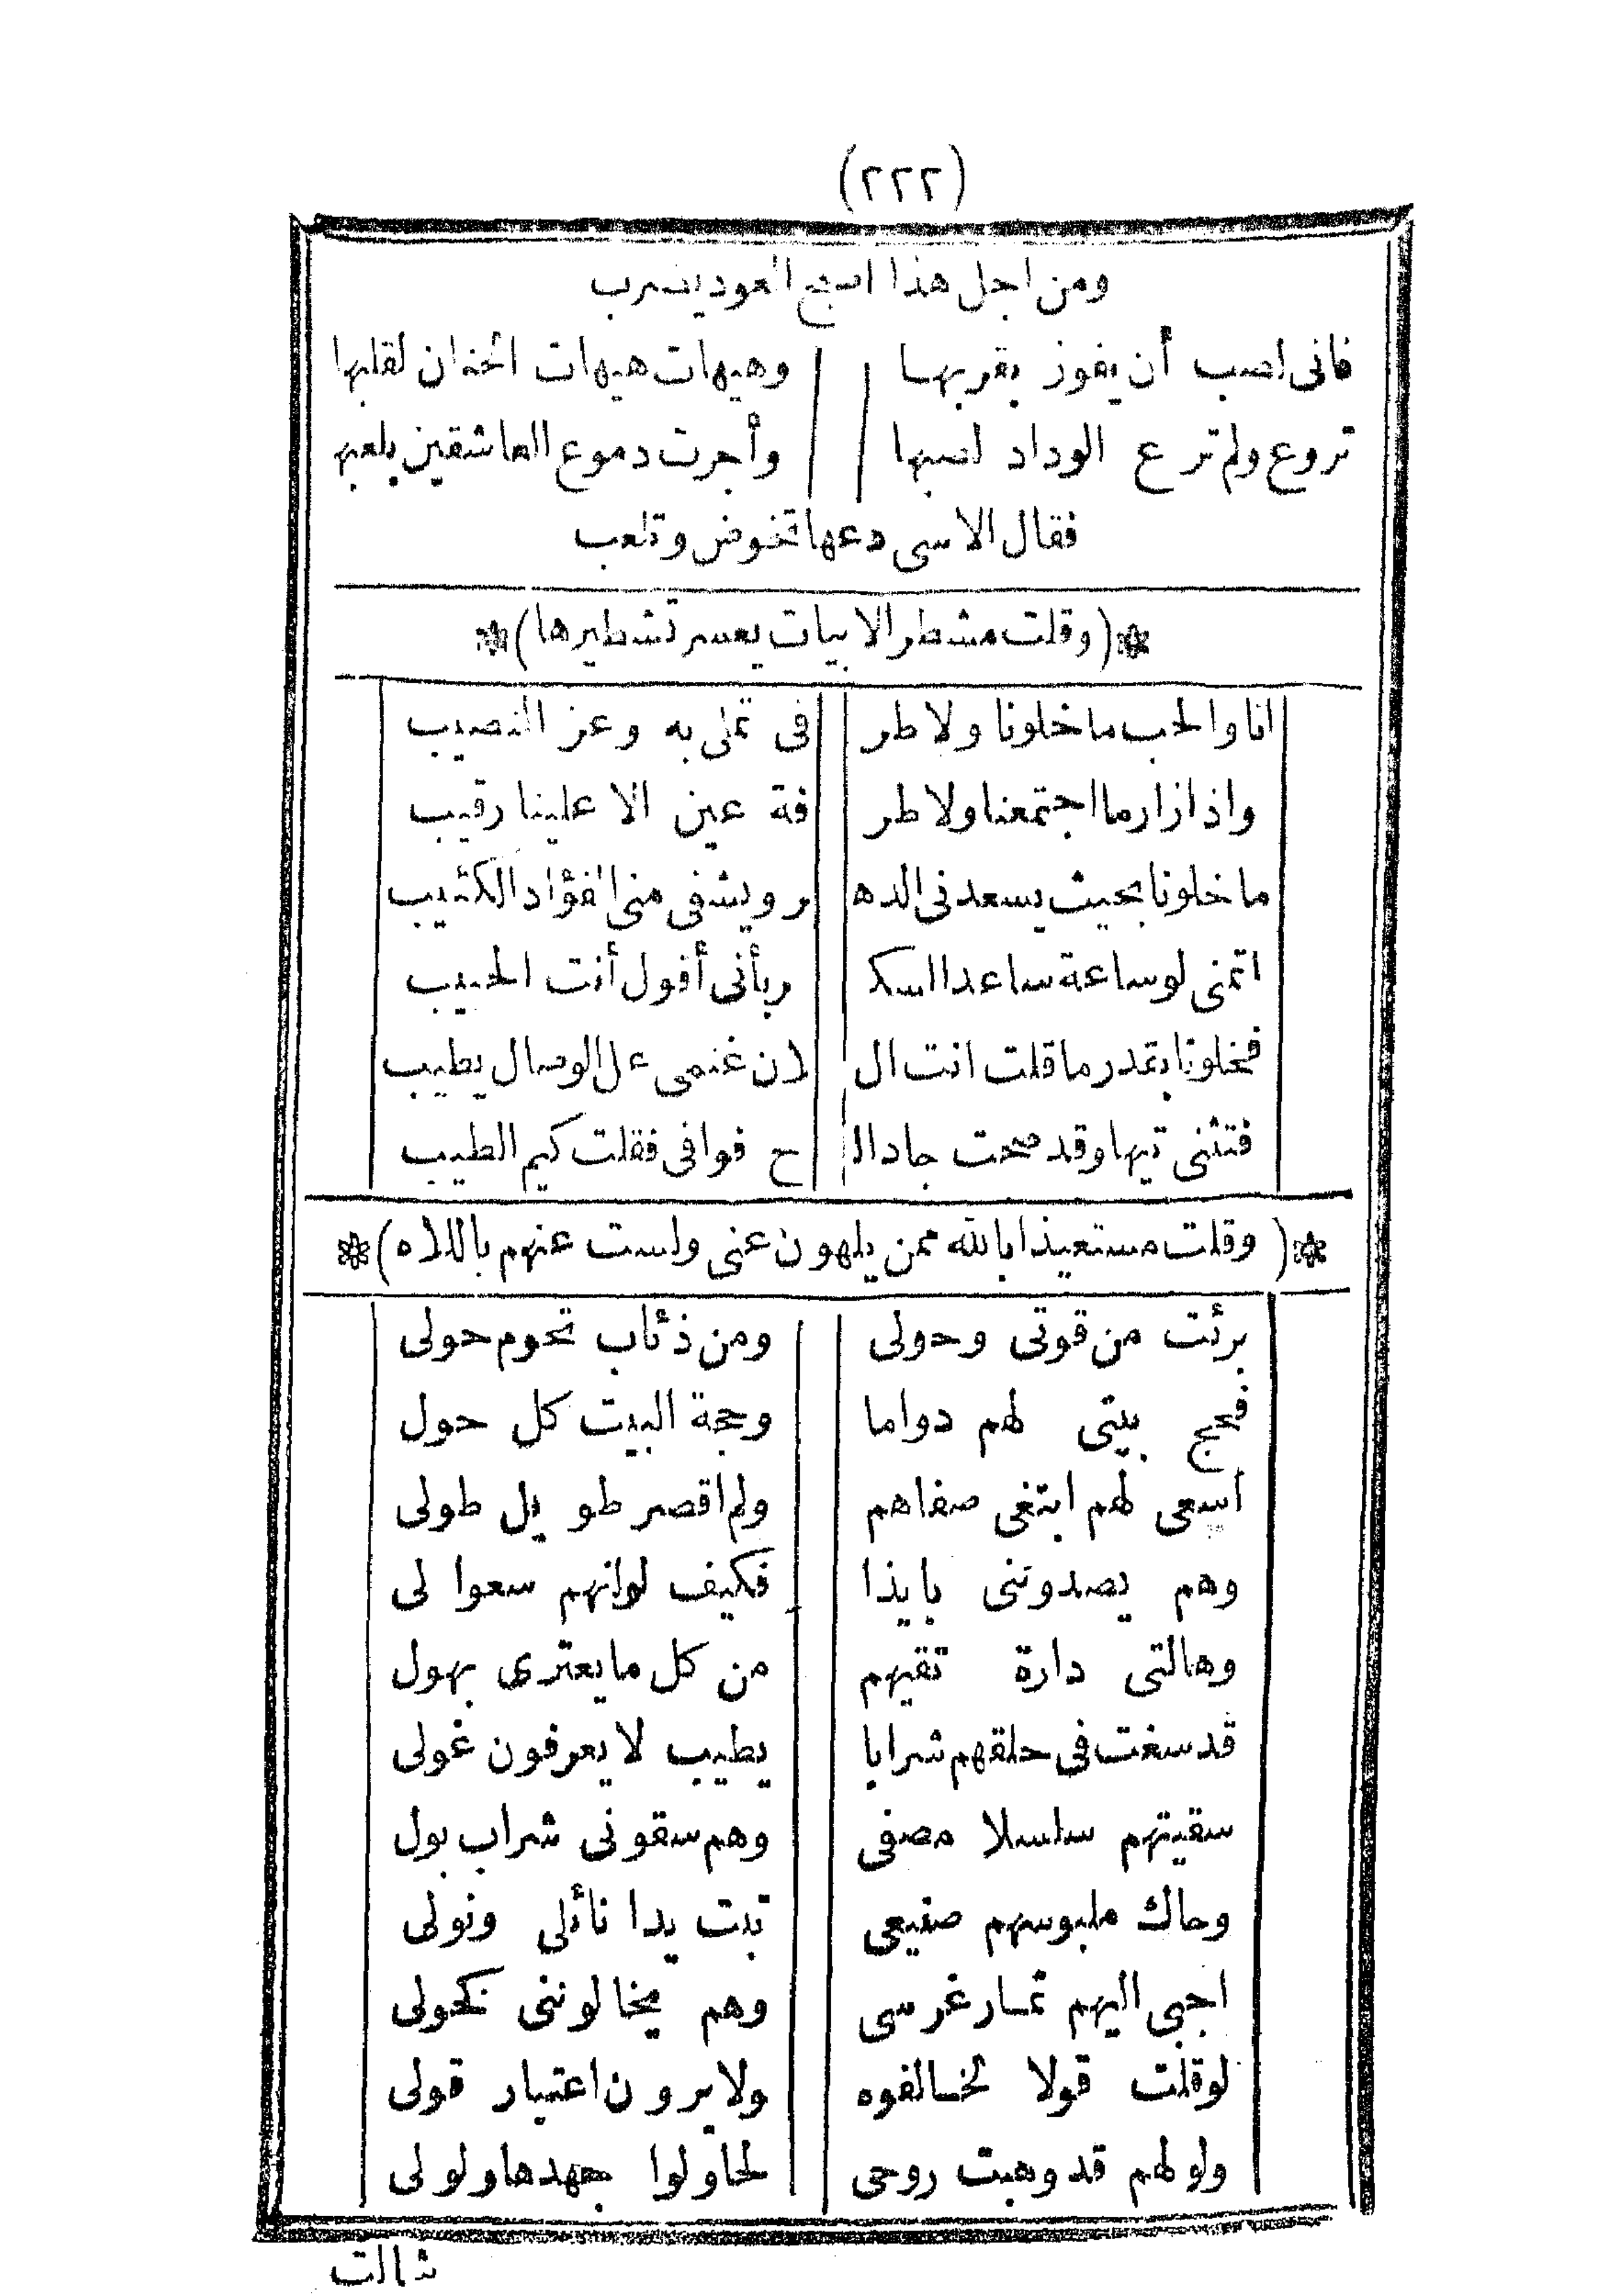 (٢٢٢)
ومن اجل هذا اصبح العود يضرب
فانى لصب أن يفوز بقربها وهيهات هيهات الحنان لقلبها
تروع ولم ترع الوداد لصبها وأجرت دموع العاشقين بلعبها
فقال الاسى دعها تخوض وتلعب
(وقلت مشطر الابيات يعسر تشطيرها)
انا والحب ما خلونا ولا طر فى تملى به وعز النصيب
واذا زار ما اجتمعنا ولا طر فة عين الا علينا رقيب
ما خلونا بحيث يسعدنى الده ر ويشفى منى الفؤاد الكئيب
اتمنى لو ساعة ساعد السك ر بأنى أقول أنت الحبيب
فخلونا بقدر ما قلت انت ال ان غنمى على الوصال يطيب
فتثنى تيها وقد صحت جاد ال ح فوافى فقلت كيم الطبيب
(وقلت مستعيذا بالله ممن يلهون عنى ولست عنهم باللاه)
برئت من قوتى وحولى ومن ذئاب تحوم حولى
فحج بيتى لهم دواما وحجة البيت كل حول
اسعى لهم ابتغى صفاهم ولم اقصر طويل طولى
وهم يصدوننى بايذا فكيف لو انهم سعوا لى
وهالتى دارة تقيهم من كل ما يعترى بهول
قد سغت فى حلقهم شرابا يطيب لا يعرفون غولى
سقيتهم سلسلا مصفى وهم سقونى شراب بول
وحاك ملبوسهم صنيعى تبت يدا نائلى ونولى
اجبى اليهم ثمار غرسى وهم يخالوننى كحولى
لو قلت قولا لخالفوه ولا يرون اعتبار قولى
ولو لهم قد وهبت روحى لحاولوا جهدها ولو لى
ثالت